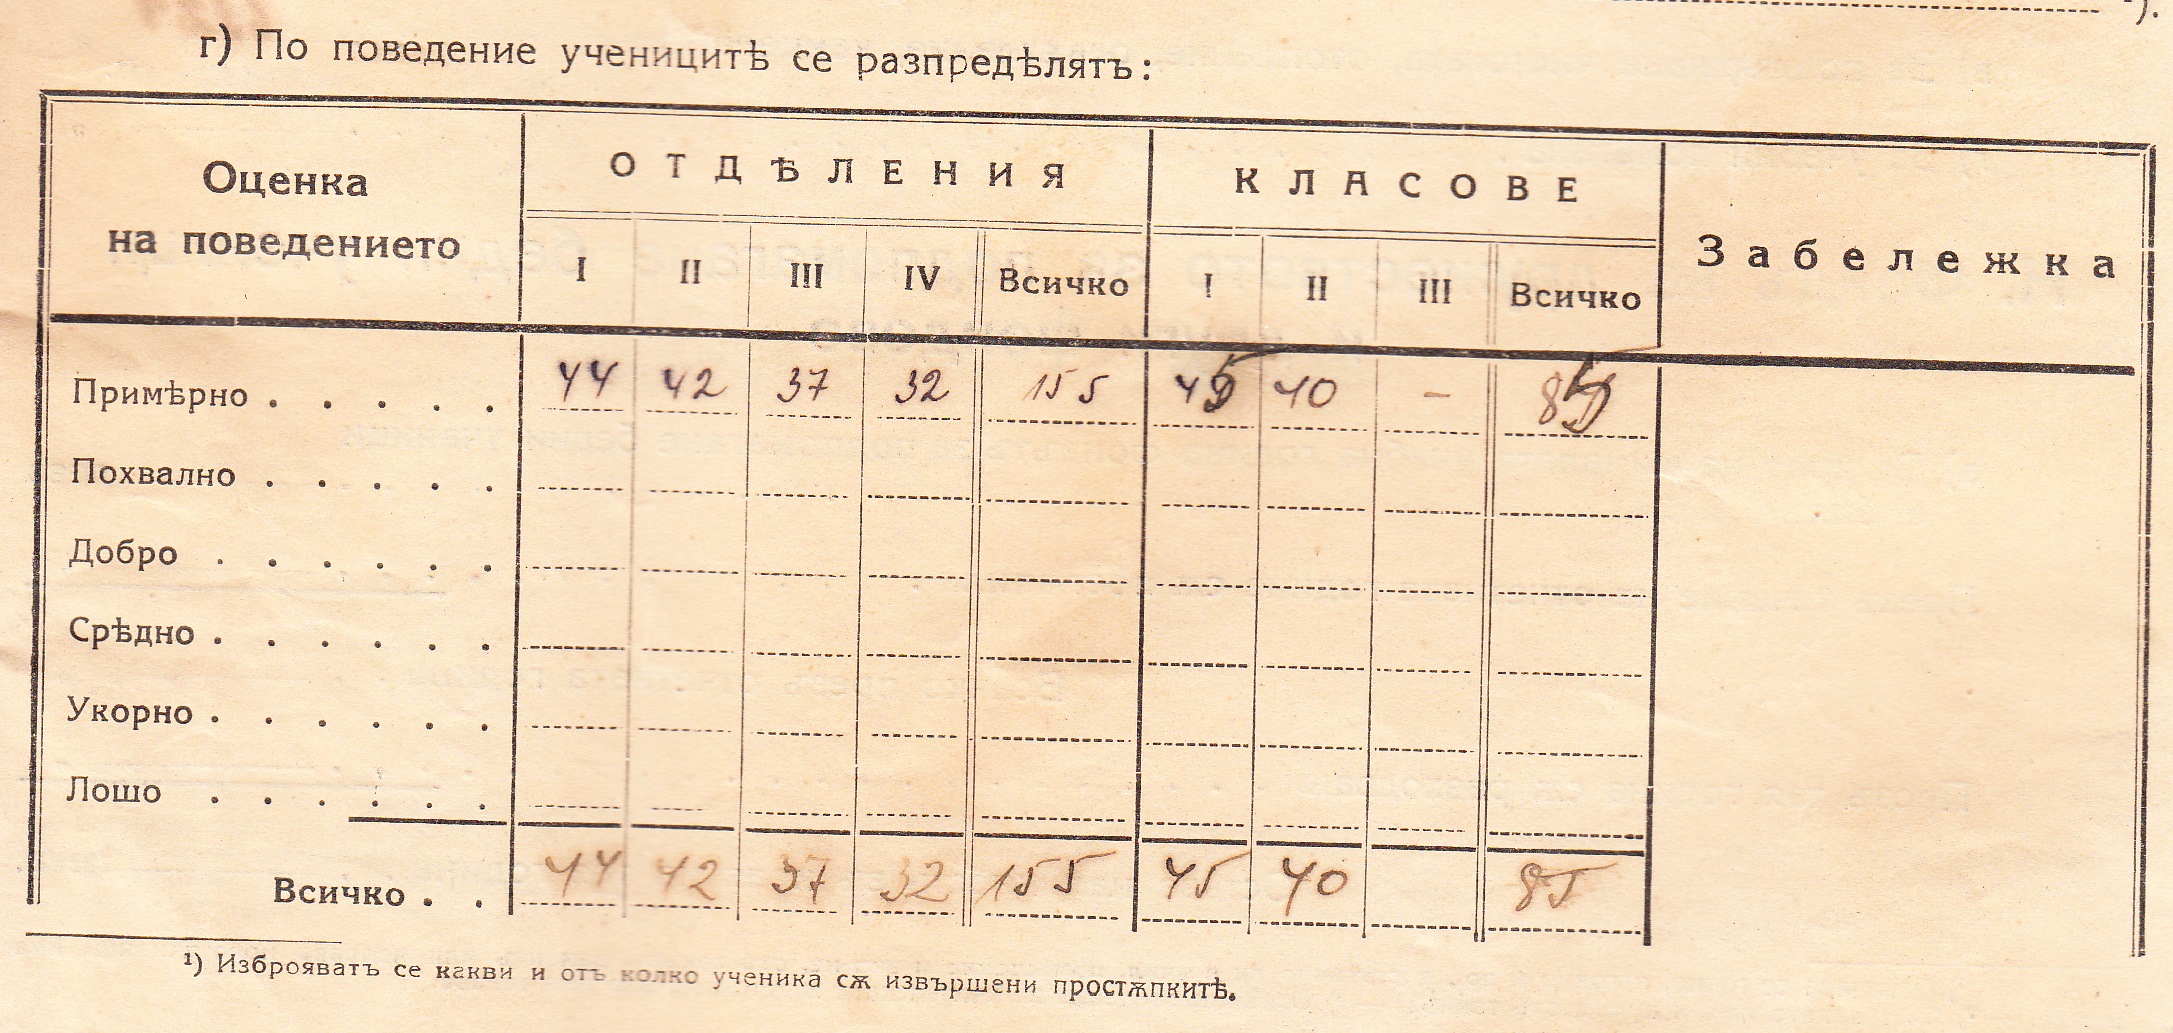 г) По поведение ученицитѣ се разпредѣлятъ:
Оценка на поведението ОТДѢЛЕНИЯ КЛАСОВЕ Забележка
I II III IV Всичко I II III Всичко
Примѣрно . . . . . 44 42 37 32 155 45 40 – 85
Похвално . . . . .
Добро . . . . . .
Срѣдно . . . . . .
Укорно . . . . . .
Лошо . . . . . .
Всичко . . 44 42 37 32 155 45 40 85
¹) Изброяватъ се какви и отъ колко ученика сѫ извършени простѫпкитѣ.